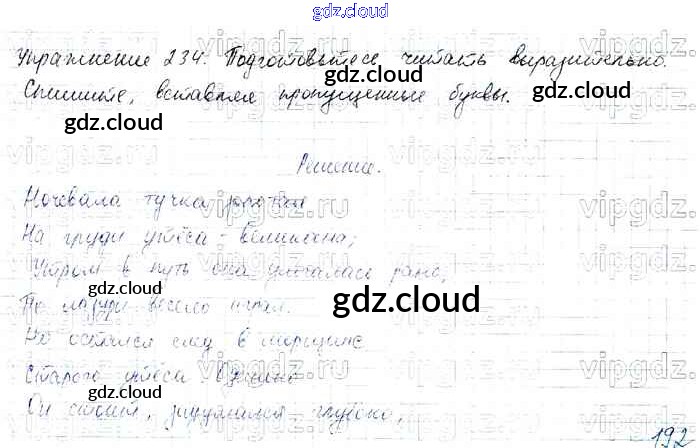 gdz.cloud
Упражнение 234. Подготовьтесь читать выразительно.
gdz.cloud
Спишите, вставляя пропущенные буквы. gdz.cloud
gdz.cloud
Решение.
Ночевала тучка золотая
gdz.cloud gdz.cloud
На груди утёса-великана;
Утром в путь она умчалась рано,
По лазури весело играя.
gdz.cloud
Но остался след в морщине
Старого утёса. Одиноко
gdz.cloud gdz.cloud
Он стоит, задумался глубоко,
192